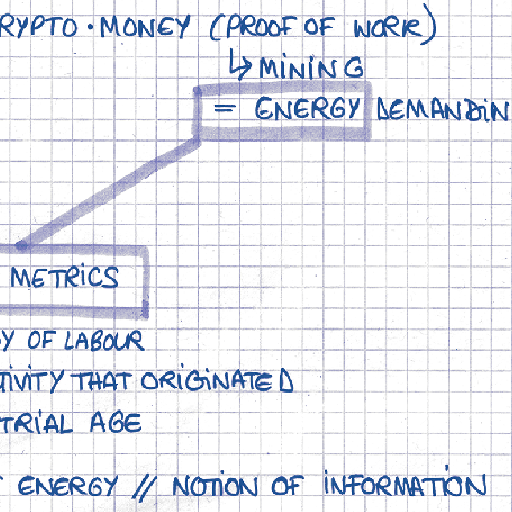 RYPTO • MONEY (PROOF OF WORK)
↳ MINING
= ENERGY DEMANDIN
METRICS
Y OF LABOUR
TIVITY THAT ORIGINATED
TRIAL AGE
ENERGY // NOTION OF INFORMATION